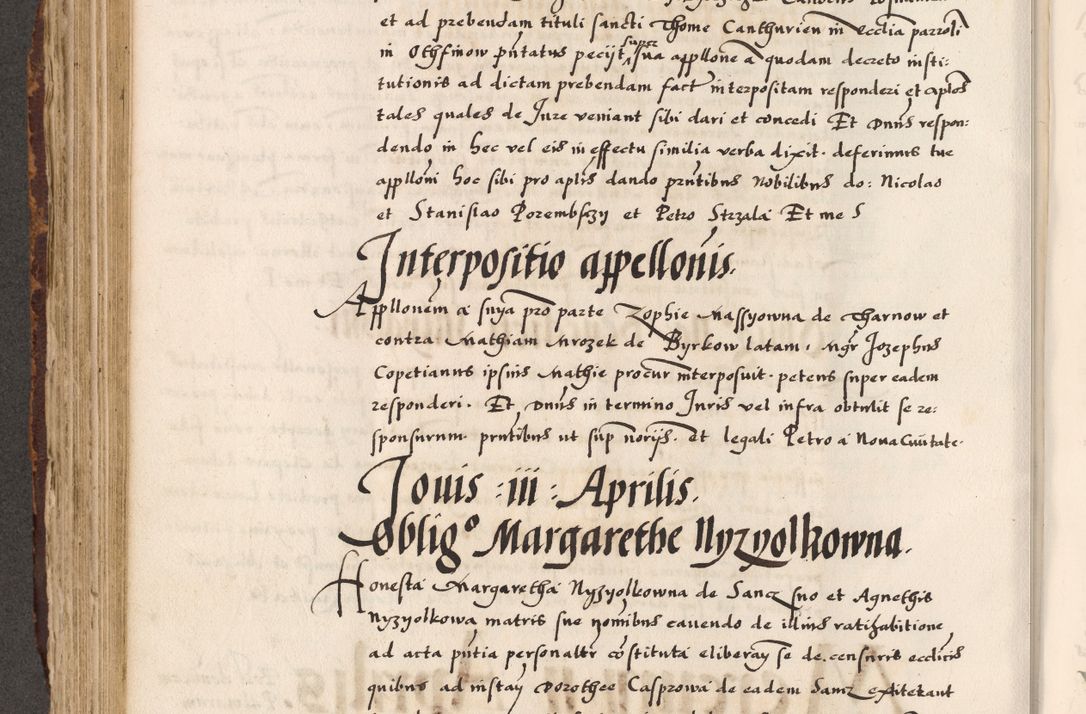 et ad prebendam tituli sancti Thome Canthurien in Ecclia parroli
in Othfinow pntatus pecijt super sua appllone a quodam decreto insti:
tutionis ad dictam prebendam fact interpositam responderi et aplos
tales quales de Jure veniant sibi dari et concedi Et Dnus respon:
dendo in hec vel eis in effectu similia verba dixit. deferimus tue
applloni hoc sibi pro aplis dando prntibus Nobilibus do: Nicolao
et Stanislao Porembszy et Petro Strzala Et me S
Interpositio appellonis.
Appllonem a snya pro parte Zophie Massyowna de Tharnow et
contra Mathiam Mrozek de Byrkow latam, Mgr Jozephus
Copetianus ipsius Mathie procur interposuit. petens super eadem
responderi. Et Dnus in termino Juris vel infra obtulit se re:
sponsurum. prntibus ut sup norijs. et legali Petro a Nova Civitate.
Jovis :iii: Aprilis.
Obligo Margarethe Nyzyolkowna.
Honesta Margaretha Nyzyolkowna de Sancz suo et Agnethis
Nyzyolkowa matris sue nomibus cavendo de illius ratihabitione
ad acta pntia personaltr constituta eliberay se de censuris ecclicis
quibus ad instay Dorothee Casprowa de eadem Sancz extiterant